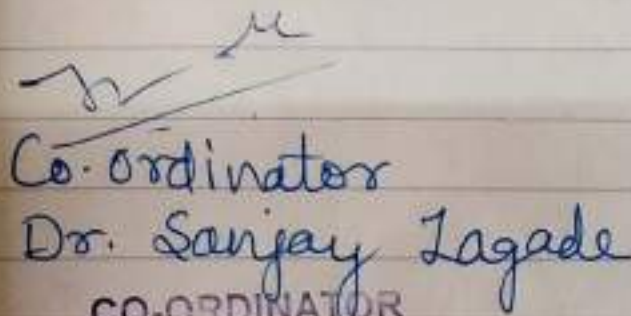 Co-ordinator
Dr. Sanjay Lagade
CO-ORDINATOR